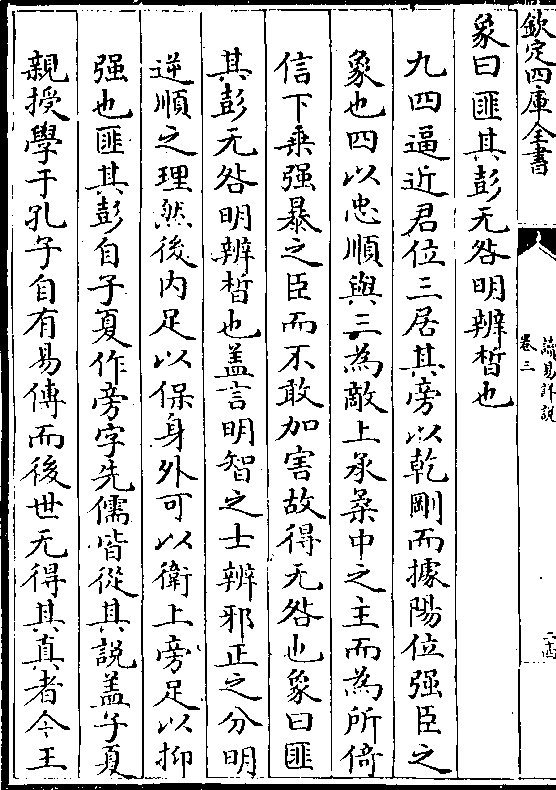 欽定四庫全書
讀易詳說
卷三
二十四
象曰匪其彭无咎明辨晳也
九四逼近君位三居其旁以乾剛而據陽位强臣之
象也四以忠順與三為敵上承柔中之主而為所倚
信下乗强暴之臣而不敢加害故得无咎也象曰匪
其彭无咎明辨晳也盖言明智之士辨邪正之分明
逆順之理然後内足以保身外可以衛上旁足以抑
强也匪其彭自子夏作旁字先儒皆從其說盖子夏
親授學于孔子自有易傳而後世无得其真者今王